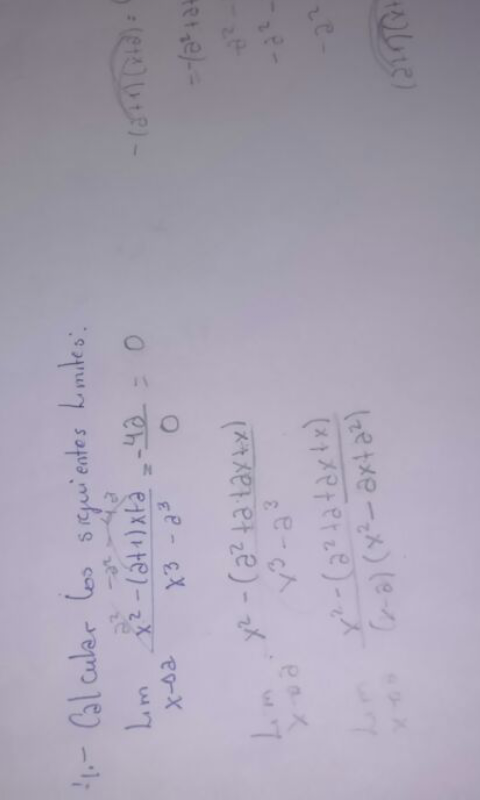 4.- Calcular los siguientes limites:
a² - a² - 4a
Lim x→a x² - (a+1)x+a / x³ - a³ = -4a / 0 = 0
Lim x→a x² - (a²+a+ax+x) / x³ - a³
Lim x→a x² - (a²+a+ax+x) / (x-a)(x² - ax+a²)
-(a+1)(x+a) =
= -(a²+a
-a²